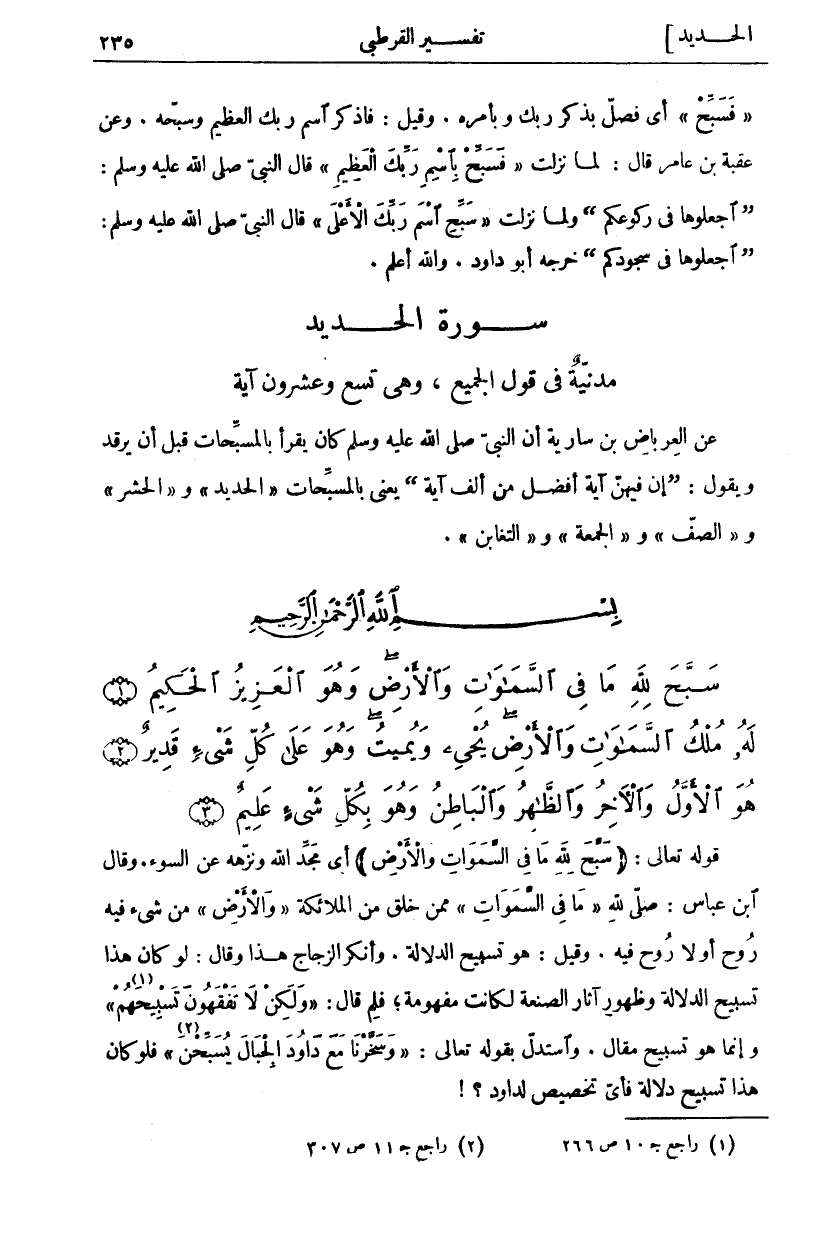 الحـــديد] تفســـير القرطبي ٢٣٥
« فَسَبِّحْ » أى فصلّ بذكر ربك وبأمره . وقيل : فاذكر ٱسم ربك العظيم وسبّحه . وعن
عقبة بن عامر قال : لمـا نزلت « فَسَبِّحْ بِٱسْمِ رَبِّكَ الْعَظِيمِ » قال النبىّ صلى الله عليه وسلم :
” ٱجعلوها فى ركوعكم “ ولمـا نزلت « سَبِّحِ ٱسْمَ رَبِّكَ الْأَعْلَى » قال النبىّ صلى الله عليه وسلم :
” ٱجعلوها فى سجودكم “ خرجه أبو داود . والله أعلم .
ســـورة الحـــديد
مدنيّةٌ فى قول الجميع ، وهى تسع وعشرون آية
عن العِرباض بن سارية أن النبىّ صلى الله عليه وسلم كان يقرأ بالمسبِّحات قبل أن يرقد
ويقول : ”إن فيهنّ آية أفضـل من ألف آية“ يعنى بالمسبِّحات « الحديد » و « الحشر »
و « الصفّ » و « الجمعة » و « التغابن » .
بِسْـــمِ ٱللَّهِ ٱلرَّحْمَٰنِ ٱلرَّحِيـمِ
سَـبَّحَ لِلَّهِ مَا فِى ٱلسَّمَٰوَٰتِ وَٱلْأَرْضِۖ وَهُوَ ٱلْعَـزِيزُ ٱلْحَكِيمُ ۝١
لَهُۥ مُلْكُ ٱلسَّمَٰوَٰتِ وَٱلْأَرْضِۖ يُحْىِۦ وَيُمِيتُۖ وَهُوَ عَلَىٰ كُلِّ شَىْءٍ قَدِيرٌ ۝٢
هُوَ ٱلْأَوَّلُ وَٱلْآخِرُ وَٱلظَّٰهِرُ وَٱلْبَاطِنُ وَهُوَ بِكُلِّ شَىْءٍ عَلِيمٌ ۝٣
قوله تعالى : ﴿ سَبَّحَ لِلَّهِ مَا فِى السَّمَوَاتِ وَالْأَرْضِ ﴾ أى مَجَّد الله ونزّهه عن السوء . وقال
ٱبن عباس : صلّى لله « مَا فِى السَّمَوَاتِ » ممن خلق من الملائكة « وَٱلْأَرْضِ » من شىء فيه
رُوح أو لا رُوح فيه . وقيل : هو تسبيح الدلالة . وأنكر الزجاج هـذا وقال : لو كان هذا
تسبيح الدلالة وظهورِ آثار الصنعة لكانت مفهومة؛ فلِم قال: «وَلَكِنْ لَا تَفْقَهُونَ تَسْبِيحَهُمْ» (١)
وإنما هو تسبيح مقال . وٱستدلّ بقوله تعالى : « وَسَخَّرْنَا مَعَ دَاوُدَ الْجِبَالَ يُسَبِّحْنَ (٢) » فلو كان
هذا تسبيح دلالة فأىّ تخصيص لداود ؟ !
(١) راجع جـ ١٠ ص ٢٦٦ (٢) راجع جـ ١١ ص ٣٠٧